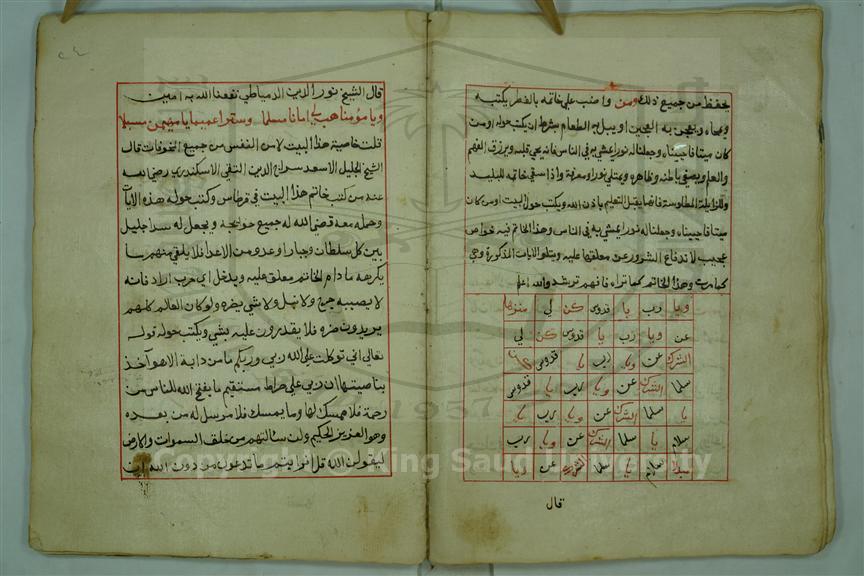 يحفظ من جميع ذلك ومن واضب على خاتمه بالفطر يكتبه
ويمحاه ويعجن به العجين او يبل به الطعام بشرط ان يكتب حوله اومن
كان ميتا فاحييناه وجعلنا له نورا يمشي به في الناس فانه يحي قلبه ويرزق الفهم
والعلم ويصفي باطنه وظاهره ويمتلي نورا ومعرفة واذا سقي خاتمه للبليد
فانه يقبل التعليم باذن الله ويكتب حول البيت اومن كان
ميتا فاحييناه وجعلنا له نورا يمشي به في الناس وهذا الخاتم فيه خواص
عجيب لاندفاع الشرور عن معلقها عليه ويتلو الايات المذكورة وهي
وهذا الخاتم كما تراه فافهم ترشد والله اعلم
ويا رب يا قدوس كن لي منزها
عن ويا رب يا قدوس كن لي
الشرك عن ويا رب يا قدوس كن
سلما الشرك عن ويا رب يا قدوس
يا سلما الشرك عن ويا رب يا
سلام يا سلما الشرك عن ويا رب
سبلا سلام يا سلما الشرك عن ويا
قال
قال الشيخ نور الدين الدمياطي نفعنا الله به امين
ويا مؤمنا هب لي امانا مسلما وسترا عميما يا مهيمن مسبلا
قلت خاصية هذا البيت لامن النفس من جميع الخوفات قال
الشيخ الجليل الاسعد سراج الدين التقي الاسكندري رضي الله
عنه من كتب خاتم هذا البيت في قرطاس وكتب حوله هذه الايآ
وحمله معه قضي الله له جميع حوائجه ويجعل له سدا جليل
بين كل سلطان وجبار او عدو من الاعدا فلا يلقي منهم سأ
يكرهه ما دام الخاتم معلق عليه ويدخل اي حرب اراد فانه
لا يصيبه جرح ولا نبل ولا شي يضره ولو كان العالم كلهم
يريدون ضره فلا يقدرون عليه بشي ويكتب حوله قوله
تعالى اني توكلت على الله ربي وربكم ما من دابة الا هو آخذ
بناصيتها ان ربي على صراط مستقيم ما يفتح الله للناس من
رحمة فلا ممسك لها وما يمسك فلا مرسل له من بعده
وهو العزيز الحكيم ولئن سئالتهم من خلق السموات والارض
ليقولن الله قل افرايتم ما تدعون من دون الله ان
Copyright © King Saud University
1957